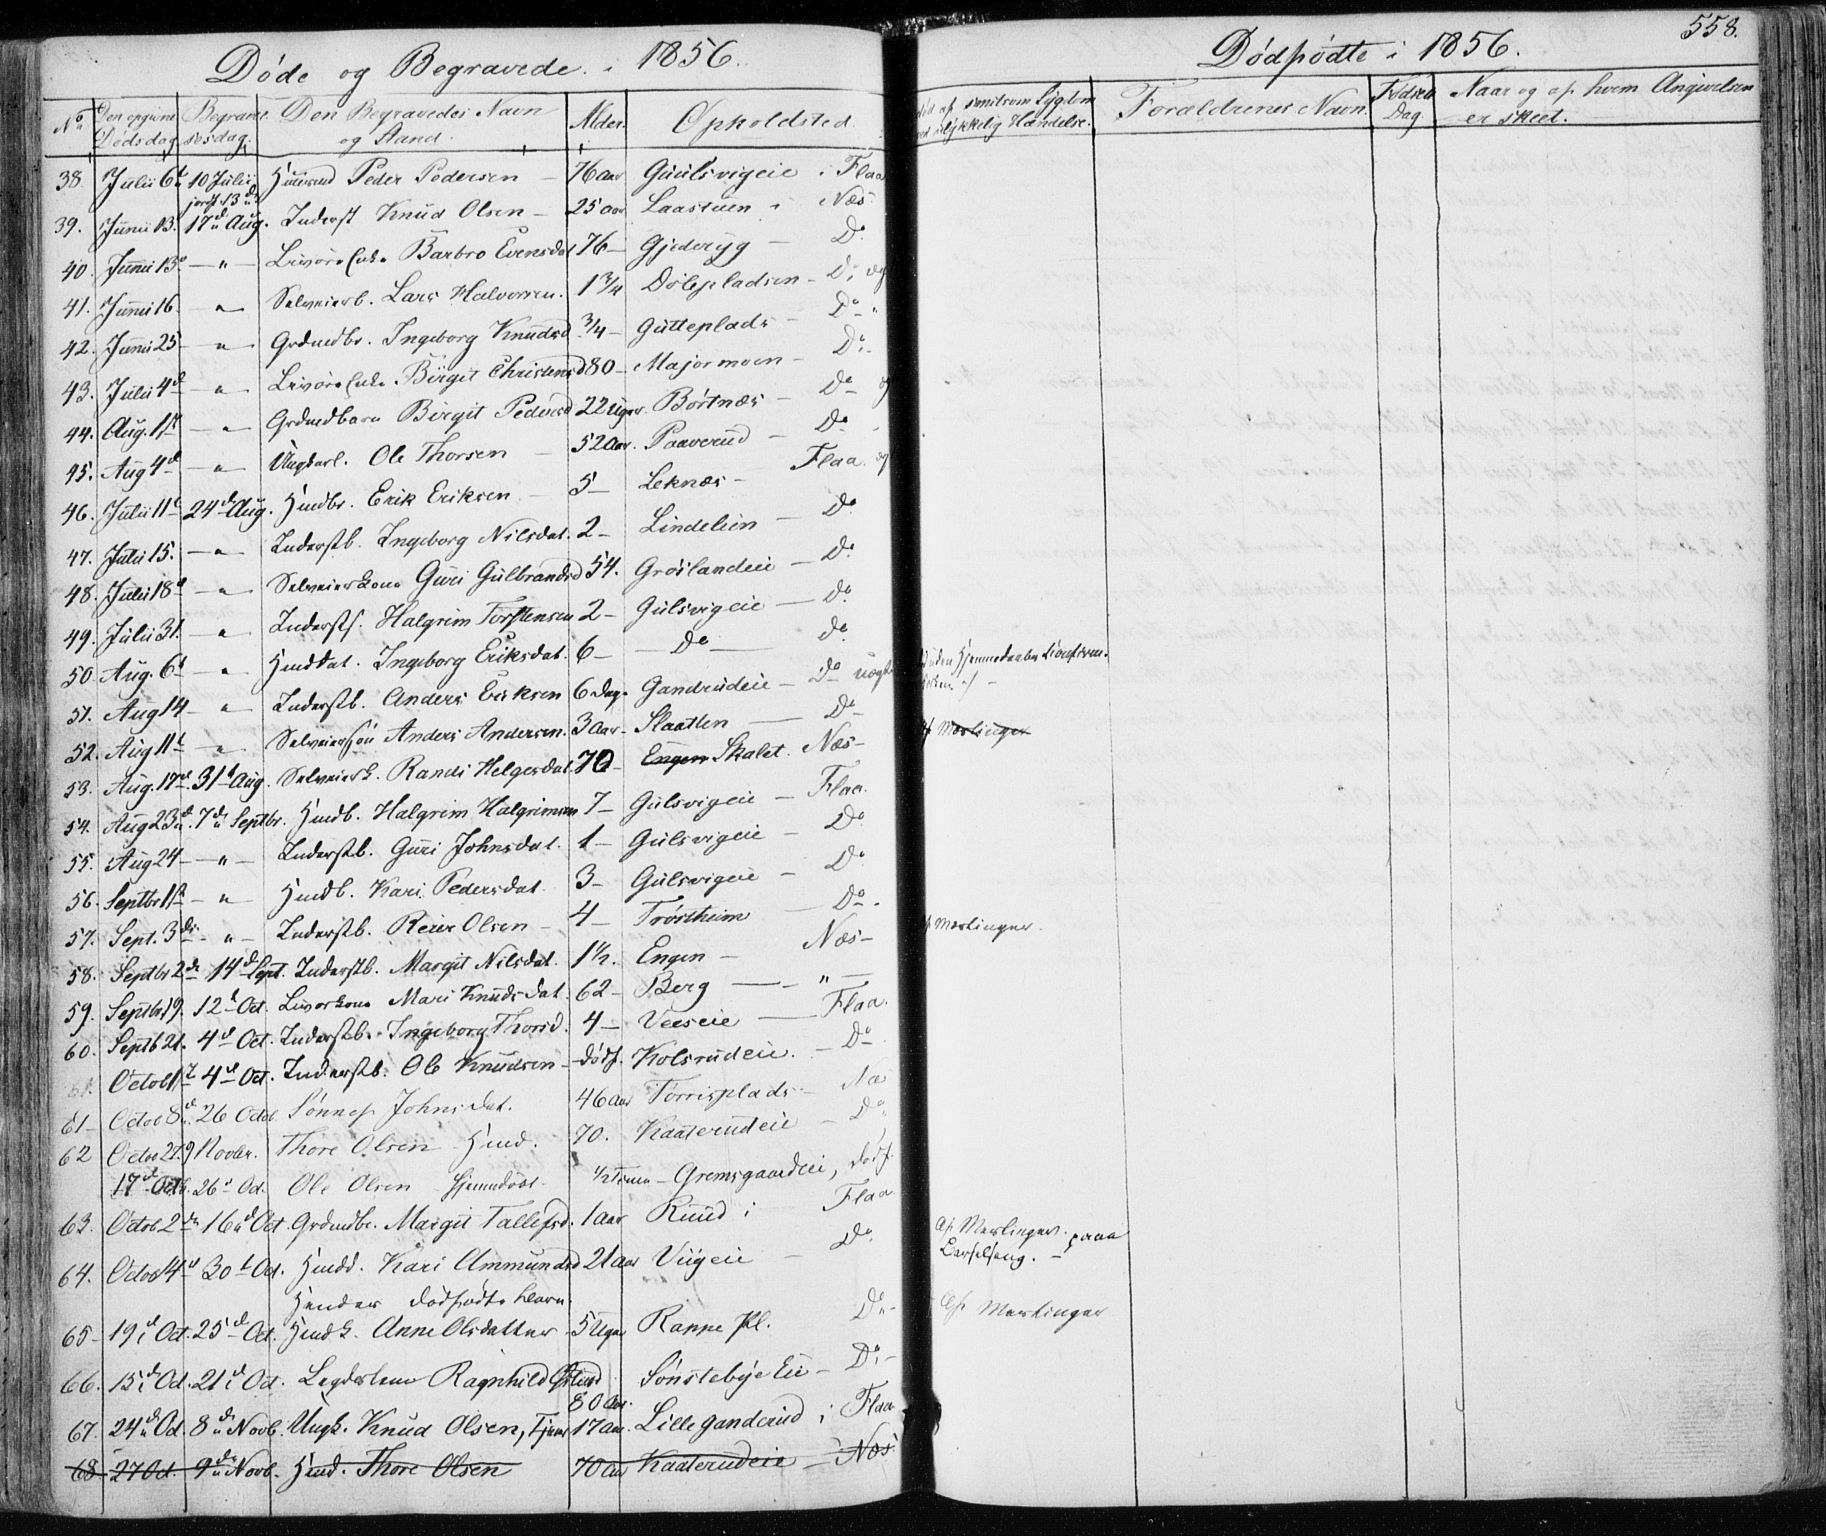 Døde og Begravede i 1856.
No Den opgivne Dødsdag. Begravelsesdag. Den Begravedes Navn og Stand. Alder. Opholdsted
38. Julii 6t 10 Julii Huusmd Peder Pedersen – 76 aar Guulsvigeie i Flaa
jordf. 13 d.
39. Junii 13. 17d Aug. Inderst Knud Olsen – 25 aar Laastuen i Næs
40. Junii 13d – " – Barbro Evensdat 76 – Gjederyg – Do
41. Junii 16 – " – Selveierb. Lars Halvorsen. 1 3/4 Dølepladsen – Do og
42. Junii 25 – " – Grdmdbr. Ingeborg Knudsd 3/4 – Gutteplads – Do "
43. Julii 4d – " – Birgit Christensd 80 – Majormoen – Do –
44. Aug. 1st – " – Grdmdbarn Birgit Pedersd 22 Uger. Børtnæs – Do og
45. Aug 4d – " – Ungkarl. Ole Thorsen – 52 Aar. Paaverud – Do
46. Julii 11t 24d Aug. Hmdbr. Erik Eriksen – 5 – Leknæs – Flaa og
47. Julii 15. – " – Inderstb. Ingeborg Nilsdat. 2 – Lindelien – Do
48. Julii 18d – " – Selveierkone Guri Gulbrandsd 54. Grøslandeie – Do
49. Julii 31. – " Indersts. Halgrim Torstensen 2 – Gulsvigeie – Do
50. Aug. 6t – " Hmddat. Ingeborg Eriksdat. 6 – Do – Do
51. Aug 14 – " Inderstb. Anders Eriksen 6 Dage Gandrudeie – Do
52. Aug 11t – " – Selveiersøn Anders Andersen. 3 Aar – Slaatten – Do
53. Aug. 17d. 31t Aug. Selveierk. Randi Helgesdat. 70 – Engen Skalet. Næs –
54. Aug 23d. 7d Septbr. Hmdb. Halgrim Halgrimsen 7 – Gulsvigeie – Flaa.
55. Aug 24 – " – Inderstb. Guri Johnsdat. 1 – Gulsvigeie – Do
56. Septbr 1st – " – Hmdb. Kari Pedersdat. 3 – Gulsvigeie – Do
57. Sept. 3di – " – Inderstb. Reier Olsen – 4 – Trøstheim – Do –
58. Septbr 2de 14d Sept. Inderstb. Margit Nilsdat. 1½. Engen – Næs –
59. Septbr 19. 12t Oct. Mari Knudsdat. 62 – Berg – " –
60. Septb 21. 4d Oct. Inderstb. Ingeborg Thorsd. 4 – Veeseie – Flaa.
Octob 1t 4d Oct. Inderstb. Ole Knudsen – dødf. Kolsrudeie. – Do
61 – Octob 8d. 26 Octob Sønnef Johnsdat. 46 aar Torrisplads – Næs
62 Octob 27. 9 Novbr. Thore Olsen Hmd. 70. Kaaterudeie – Do
17d Octb. 26d Oct. Ole Olsen hjemmdøbt ½ Time – Gremsgaardeie, dødf.
63. Octob 2de 16d Oct. Grdmdbr. Margit Tallefsd. 1 aar Ruud i Flaa
64. Octob 4d 30t Oct. Hmdd. Kari Ammundsd 21 aar Viigeie – Do
Hendes dødfødte barn.
65 – 19d Oct. 25d Oct. Anne Olsdatter – 5 Uger Rappe Pl. Do –
66. 15d Oct. 21d Oct. Ragnhild Sønstebyeie – Do –
80 Aar.
67. 24d Oct. 8d Novb. Ungk. Knud Olsen, 17 aar. Lille ganderud i Flaa
68 27 Oct. 9de Novb. Hmd. Thore Olsen 70 aar Kaaterudeie – Næs
Dødfødte i 1856.
558.
Forældrenes Navn. Fødsels Dag. Naar og af hvem Angivelsen er skeet.
af Mæslinger
af Mæslinger.
Af Mæslinger. paa
Barselseng. –
Af Mæslinger